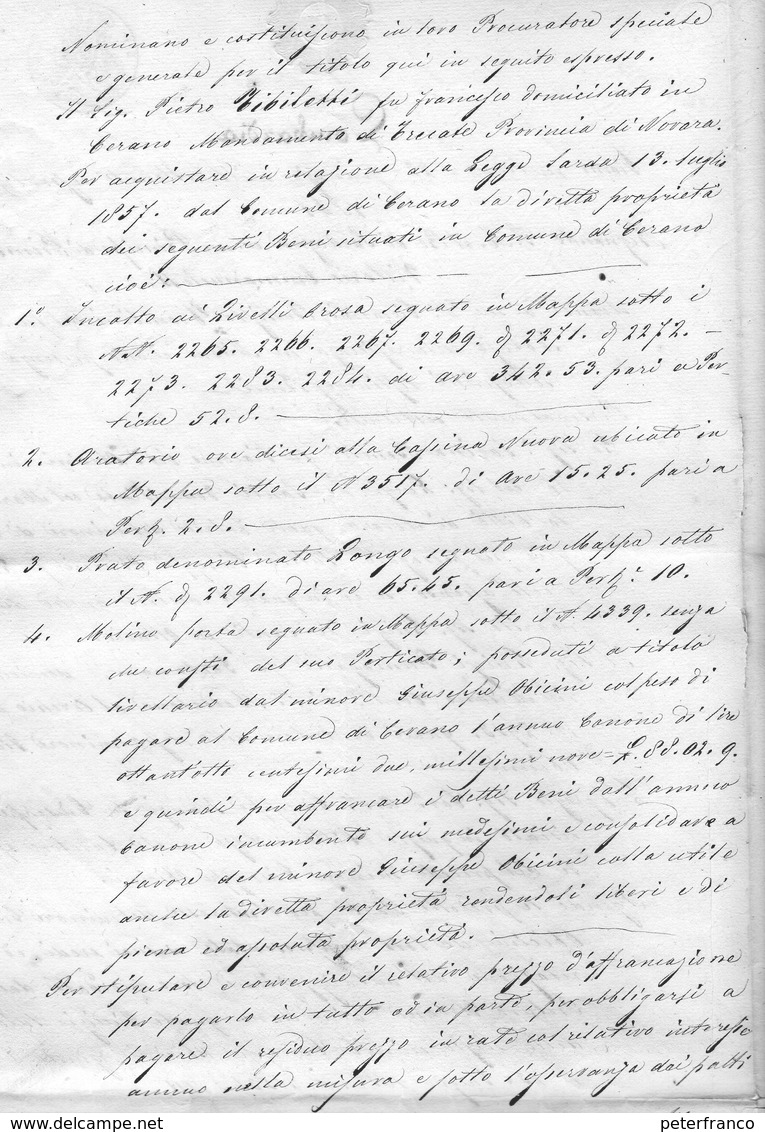 Nominano e costituiscono in loro Procuratore speciale
e generale per il titolo qui in seguito espresso.
Il Sig. Pietro Tibiletti fu Francesco domiciliato in
Cerano Mandamento di Trecate Provincia di Novara.
Per acquistare in relazione alla Legge Sarda 13. Luglio
1857. dal Comune di Cerano la diretta proprietà
dei seguenti Beni situati in Comune di Cerano
cioè:
1.° Incolto ai Livelli Crosa segnato in Mappa sotto i
N.N. 2265. 2266. 2267. 2269. 2271. 2272. –
2273. 2283. 2284. di are 342. 53. pari a Per-
tiche 52. 8.
2. Aratorio ove dicesi alla Cassina Nuova ubicato in
Mappa sotto il N 3517. di are 15. 25. pari a
Pert. 2. 8.
3. Prato denominato Longo segnato in Mappa sotto
il N. 2291. di are 65. 45. pari a Pert. 10.
4. Molino porta segnato in Mappa sotto il N. 4339. senza
che consti del suo Perticato; posseduti a titolo
livellario dal minore Giuseppe Obicini col peso di
pagare al Comune di Cerano l'annuo Canone di lire
ottant'otto centesimi due, millesimi nove = £. 88. 02. 9.
e quindi per affrancare i detti Beni dall'annuo
Canone incumbente sui medesimi e consolidare a
favore del minore Giuseppe Obicini colla utile
anche la diretta proprietà rendendoli liberi e di
piena ed assoluta proprietà.
Per stipulare e convenire il relativo prezzo d'affrancazione
per pagarlo in tutto od in parte, per obbligarsi a
pagare il residuo prezzo in rate col relativo interesse
annuo nella misura e sotto l'osservanza dei patti
peterfranco